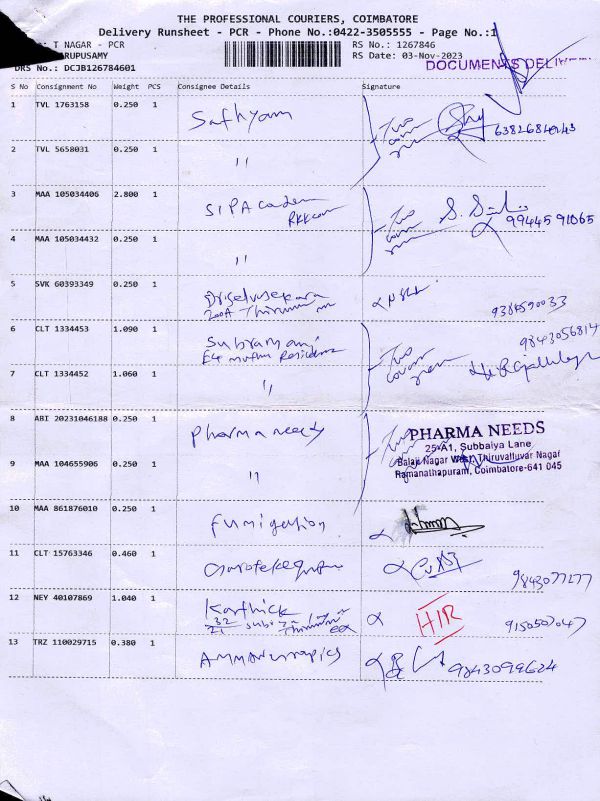 THE PROFESSIONAL COURIERS, COIMBATORE
Delivery Runsheet - PCR - Phone No.:0422-3505555 - Page No.:1
: T NAGAR - PCR
RS No.: 1267846
RUPUSAMY
RS Date: 03-Nov-2023
DRS No.: DCJB126784601
DOCUMENTS
S No Consignment No Weight PCS Consignee Details Signature
1 TVL 1763158 0.250 1 Sathyam
Two
2 TVL 5658031 0.250 1 "
3 MAA 105034406 2.800 1 SIP Academ
Two 9944591065
4 MAA 105034432 0.250 1 "
5 SVK 60393349 0.250 1
9384590033
6 CLT 1334453 1.090 1 Subramani
9843056814
Two
7 CLT 1334452 1.060 1 "
8 ABI 20231046188 0.250 1 Pharma needs
Two
PHARMA NEEDS
25-A1, Subbaiya Lane
Balaji Nagar West, Thiruvalluvar Nagar
Ramanathapuram, Coimbatore-641 045
9 MAA 104655906 0.250 1 "
10 MAA 861876010 0.250 1 Fumigation
11 CLT 15763346 0.460 1
9843077177
12 NEY 40107869 1.040 1 Karthick
H/R 9150507047
13 TRZ 110029715 0.380 1
9843099624